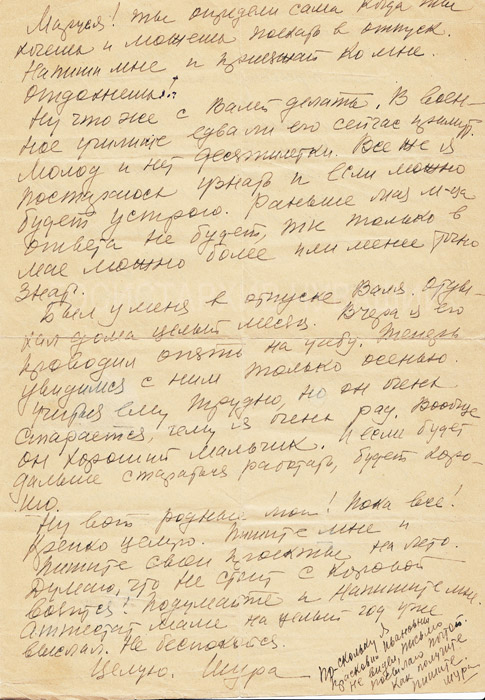 Маруся! Ты определи сама когда ты
хочешь и можешь поехать в отпуск.
Напиши мне и приезжай ко мне.
Отдохнешь!
Ну что же с Валей делать. В воен-
ное училище едва ли его сейчас примут.
Молод и нет десятилетки. Все же я
постараюсь узнать и если можно
будет устрою. Раньше мая м-ца
ответа не будет, т.к. только в
мае можно более или менее точно
знать.
Был у меня в отпуске Валя. Отды-
хал дома целый месяц. Вчера я его
проводил опять на учебу. Теперь
увидимся с ним только осенью.
Учится ему трудно, но он очень
старается, чему я очень рад. Вообще
он хороший мальчик. И если будет
дальше стараться работать, будет хоро-
шо.
Ну вот родные мои! Пока все!
Крепко целую. Пишите мне и
пишите свои проекты на лето.
Думаю, что не стоит с коровой
возится? Подумайте и напишите мне.
Аттестат маме на целый год уже
выслал. Не беспокойся.
Целую. Шура
Поскольку я
Прасковьи Ивановны
не видел, письмо
посылаю почтой.
Как получите
пишите
Шура